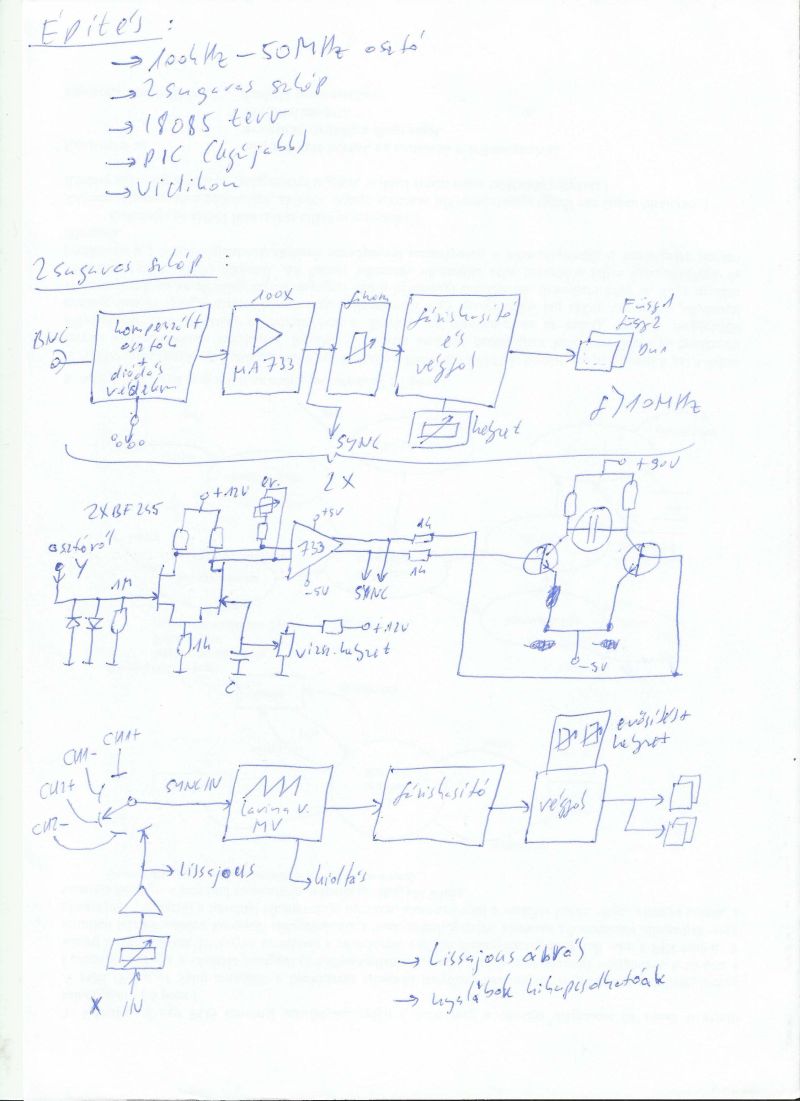 Építés :
→ 100kHz - 50MHz osztó
→ 2 sugaras szkóp
→ I8085 terv
→ PIC (legújabb)
→ Vidikon
2 sugaras szkóp :
BNC
kompenzált
osztók
+
diódás
védelem
100X
MA733
finom
fázishasító
és
végfok
Függ1
függ2
SYNC
helyzet
f>10MHz
2X
2XBF245
+12V
er.
+5V
+90V
osztóról
Y
733
1k
1k
SYNC
-5V
1M
1k
+12V
vízsz. helyzet
C
-5V
CH1+
CH1-
CH2+
CH2-
SYNC IN
Lavina v.
MV
fázishasító
végfok
erősítés+
helyzet
→ Lissajous
→ kioltás
X IN
→ Lissajous ábrás
→ nyalábok kikapcsolhatóak